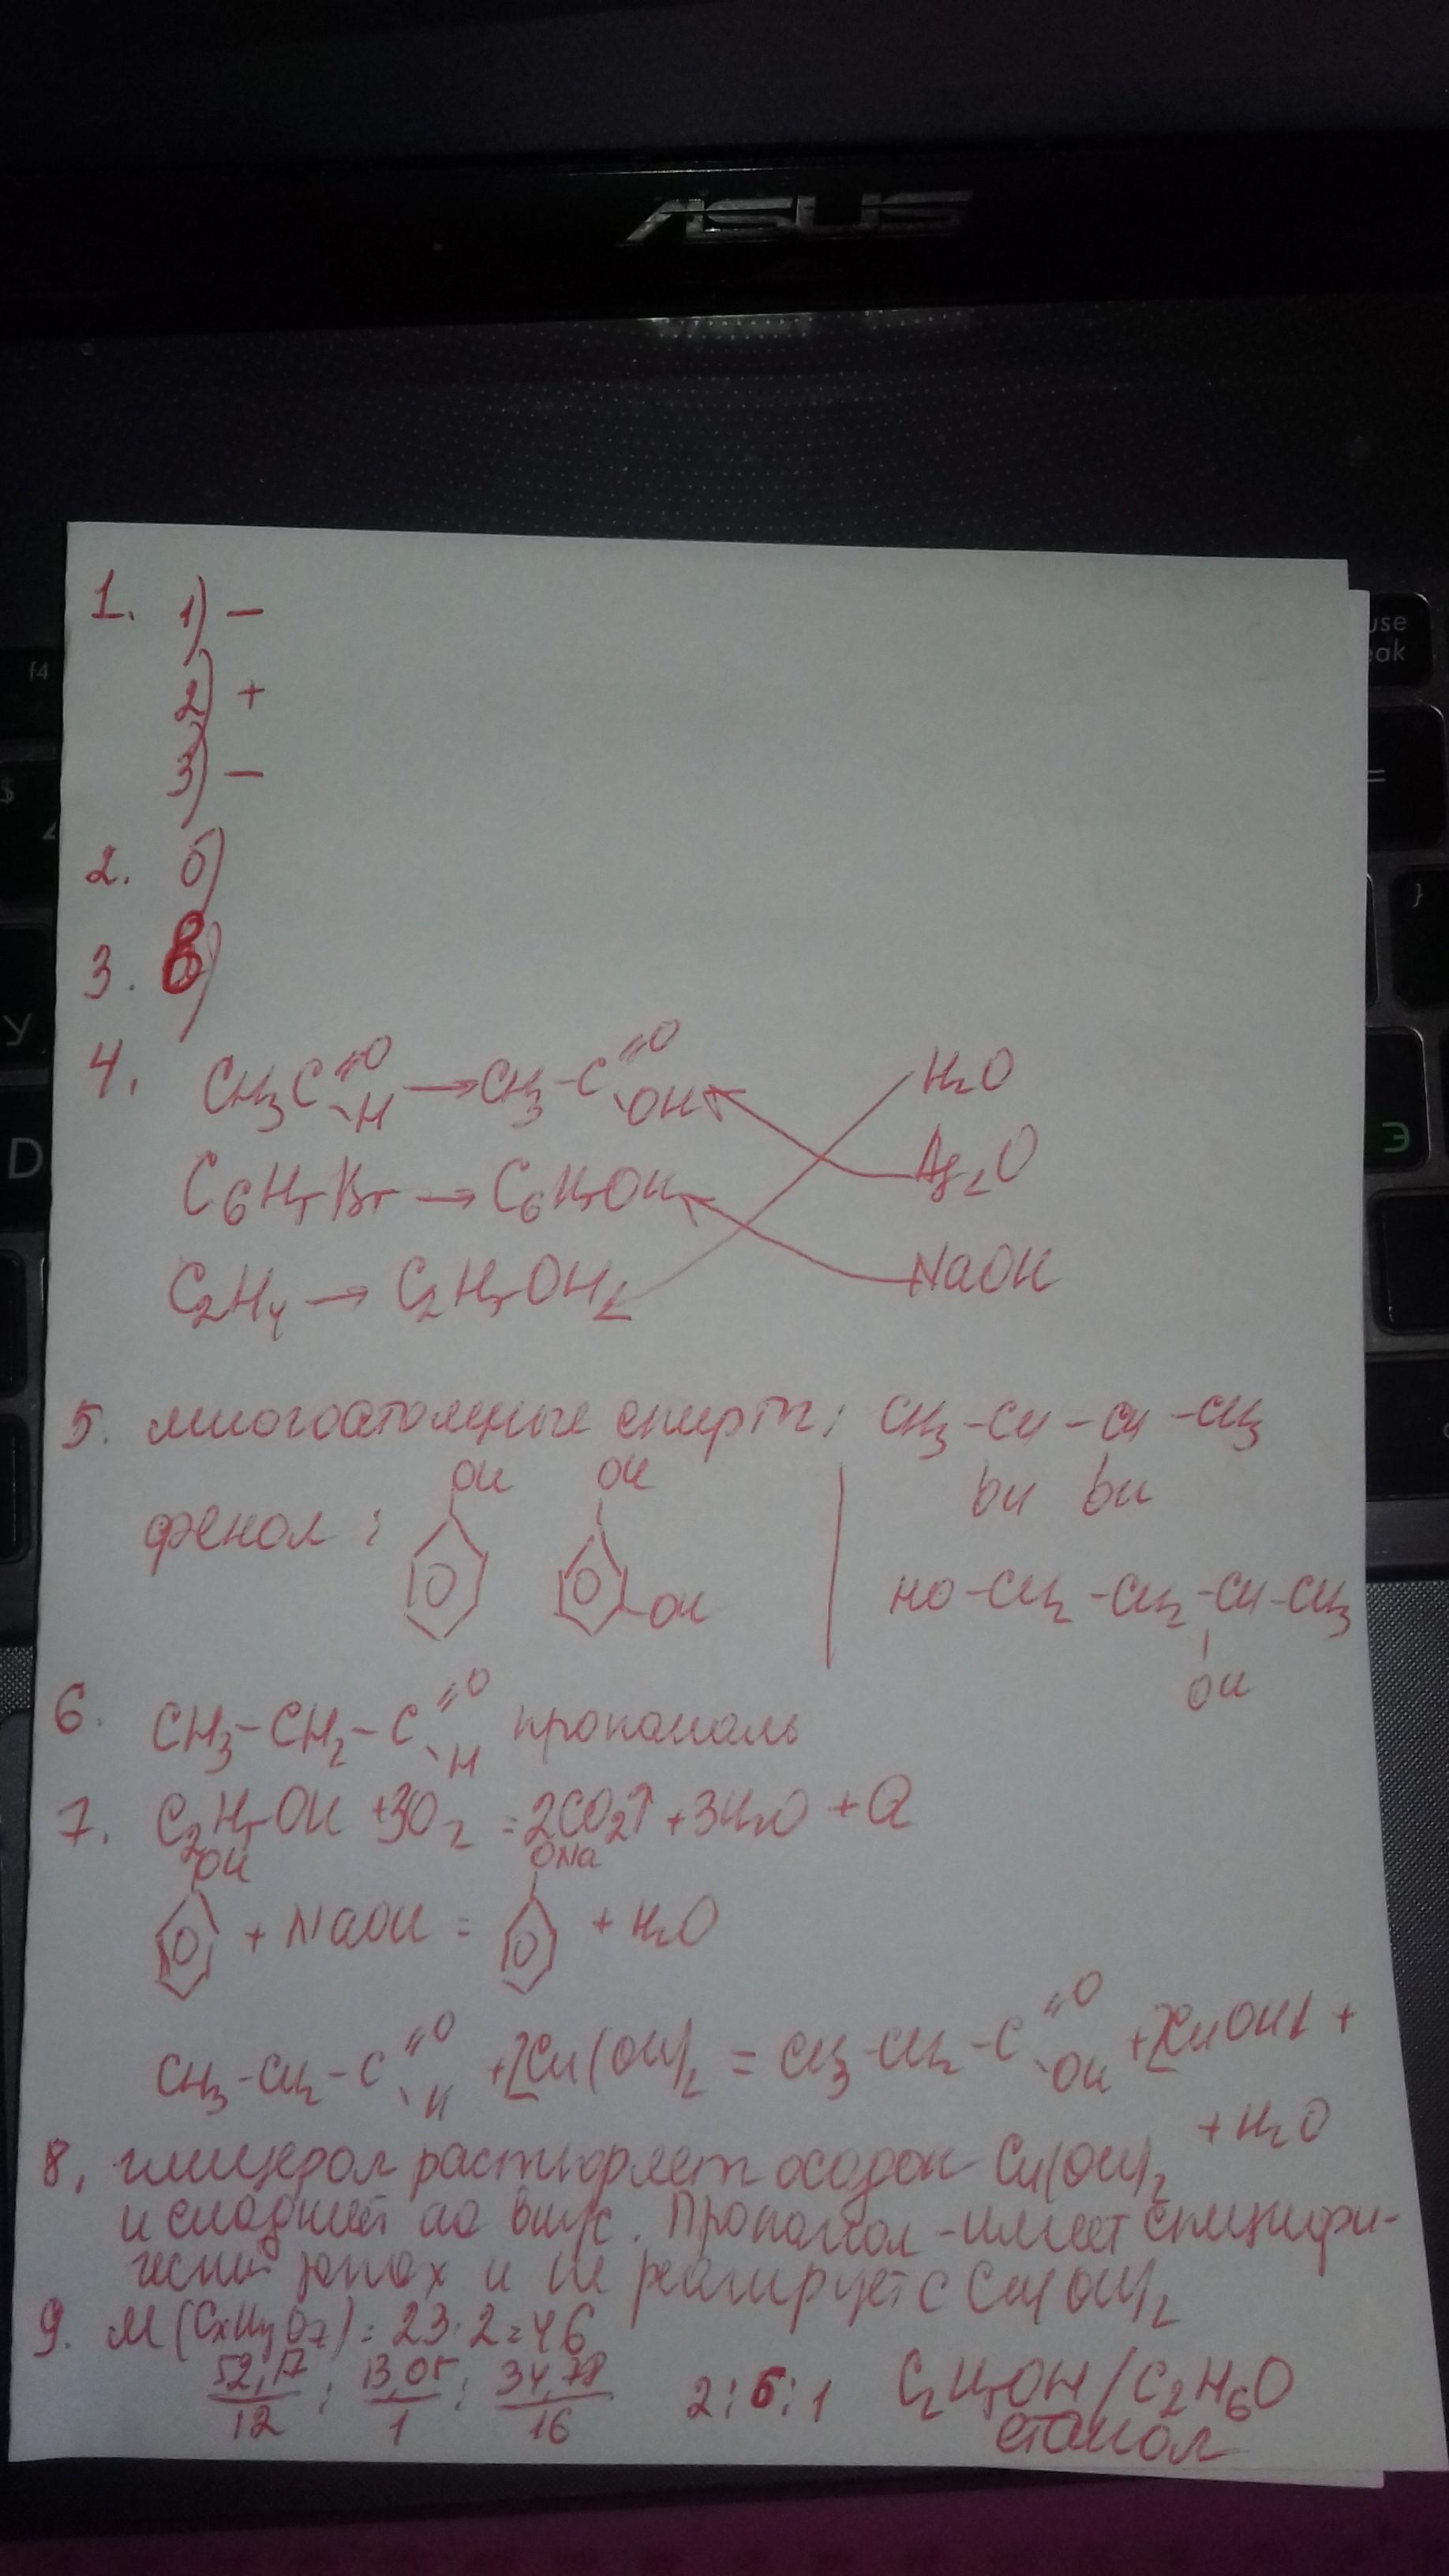 ASUS
f4
use
eak
$
=
}
У
D
Э
1. 1) –
2) +
3) –
2. б)
3.
4. CH3C=O–H → CH3–C=O–OH H2O
C6H5Br → C6H5OH Ag2O
C2H4 → C2H5OH NaOH
5. многоатомные спирты: CH3–CH–CH–CH3
OH OH
фенол: OH OH
OH
HO–CH2–CH2–CH–CH3
OH
6. CH3–CH2–C=O–H пропаналь
7. C2H5OH + 3O2 = 2CO2↑ + 3H2O + Q
OH + NaOH = ONa + H2O
CH3–CH2–C=O–H + 2Cu(OH)2 = CH3–CH2–C=O–OH + 2CuOH↓ +
+ H2O
8. глицерол растворяет осадок Cu(OH)2
и сладкий на вкус. Пропанол – имеет специфи-
ческий запах и не реагирует с Cu(OH)2
9. M(CxHyOz) = 23·2=46
52,17/12 : 13,05/1 : 34,78/16 2:6:1 C2H5OH / C2H6O
етанол